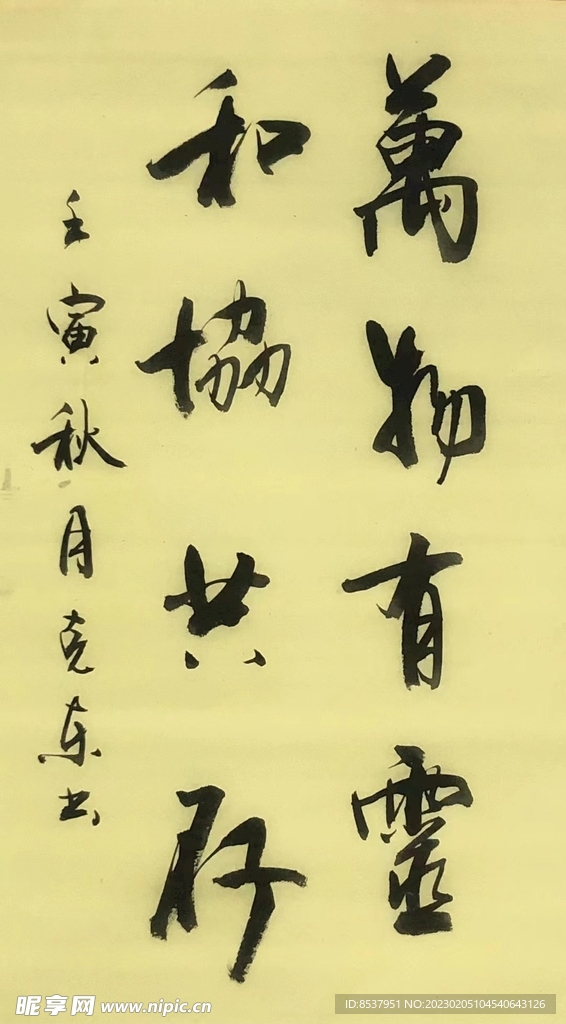 萬物有靈
和協共存
壬寅秋月克东书
昵享网 www.nipic.cn
ID:8537951 NO:20230205104540643126